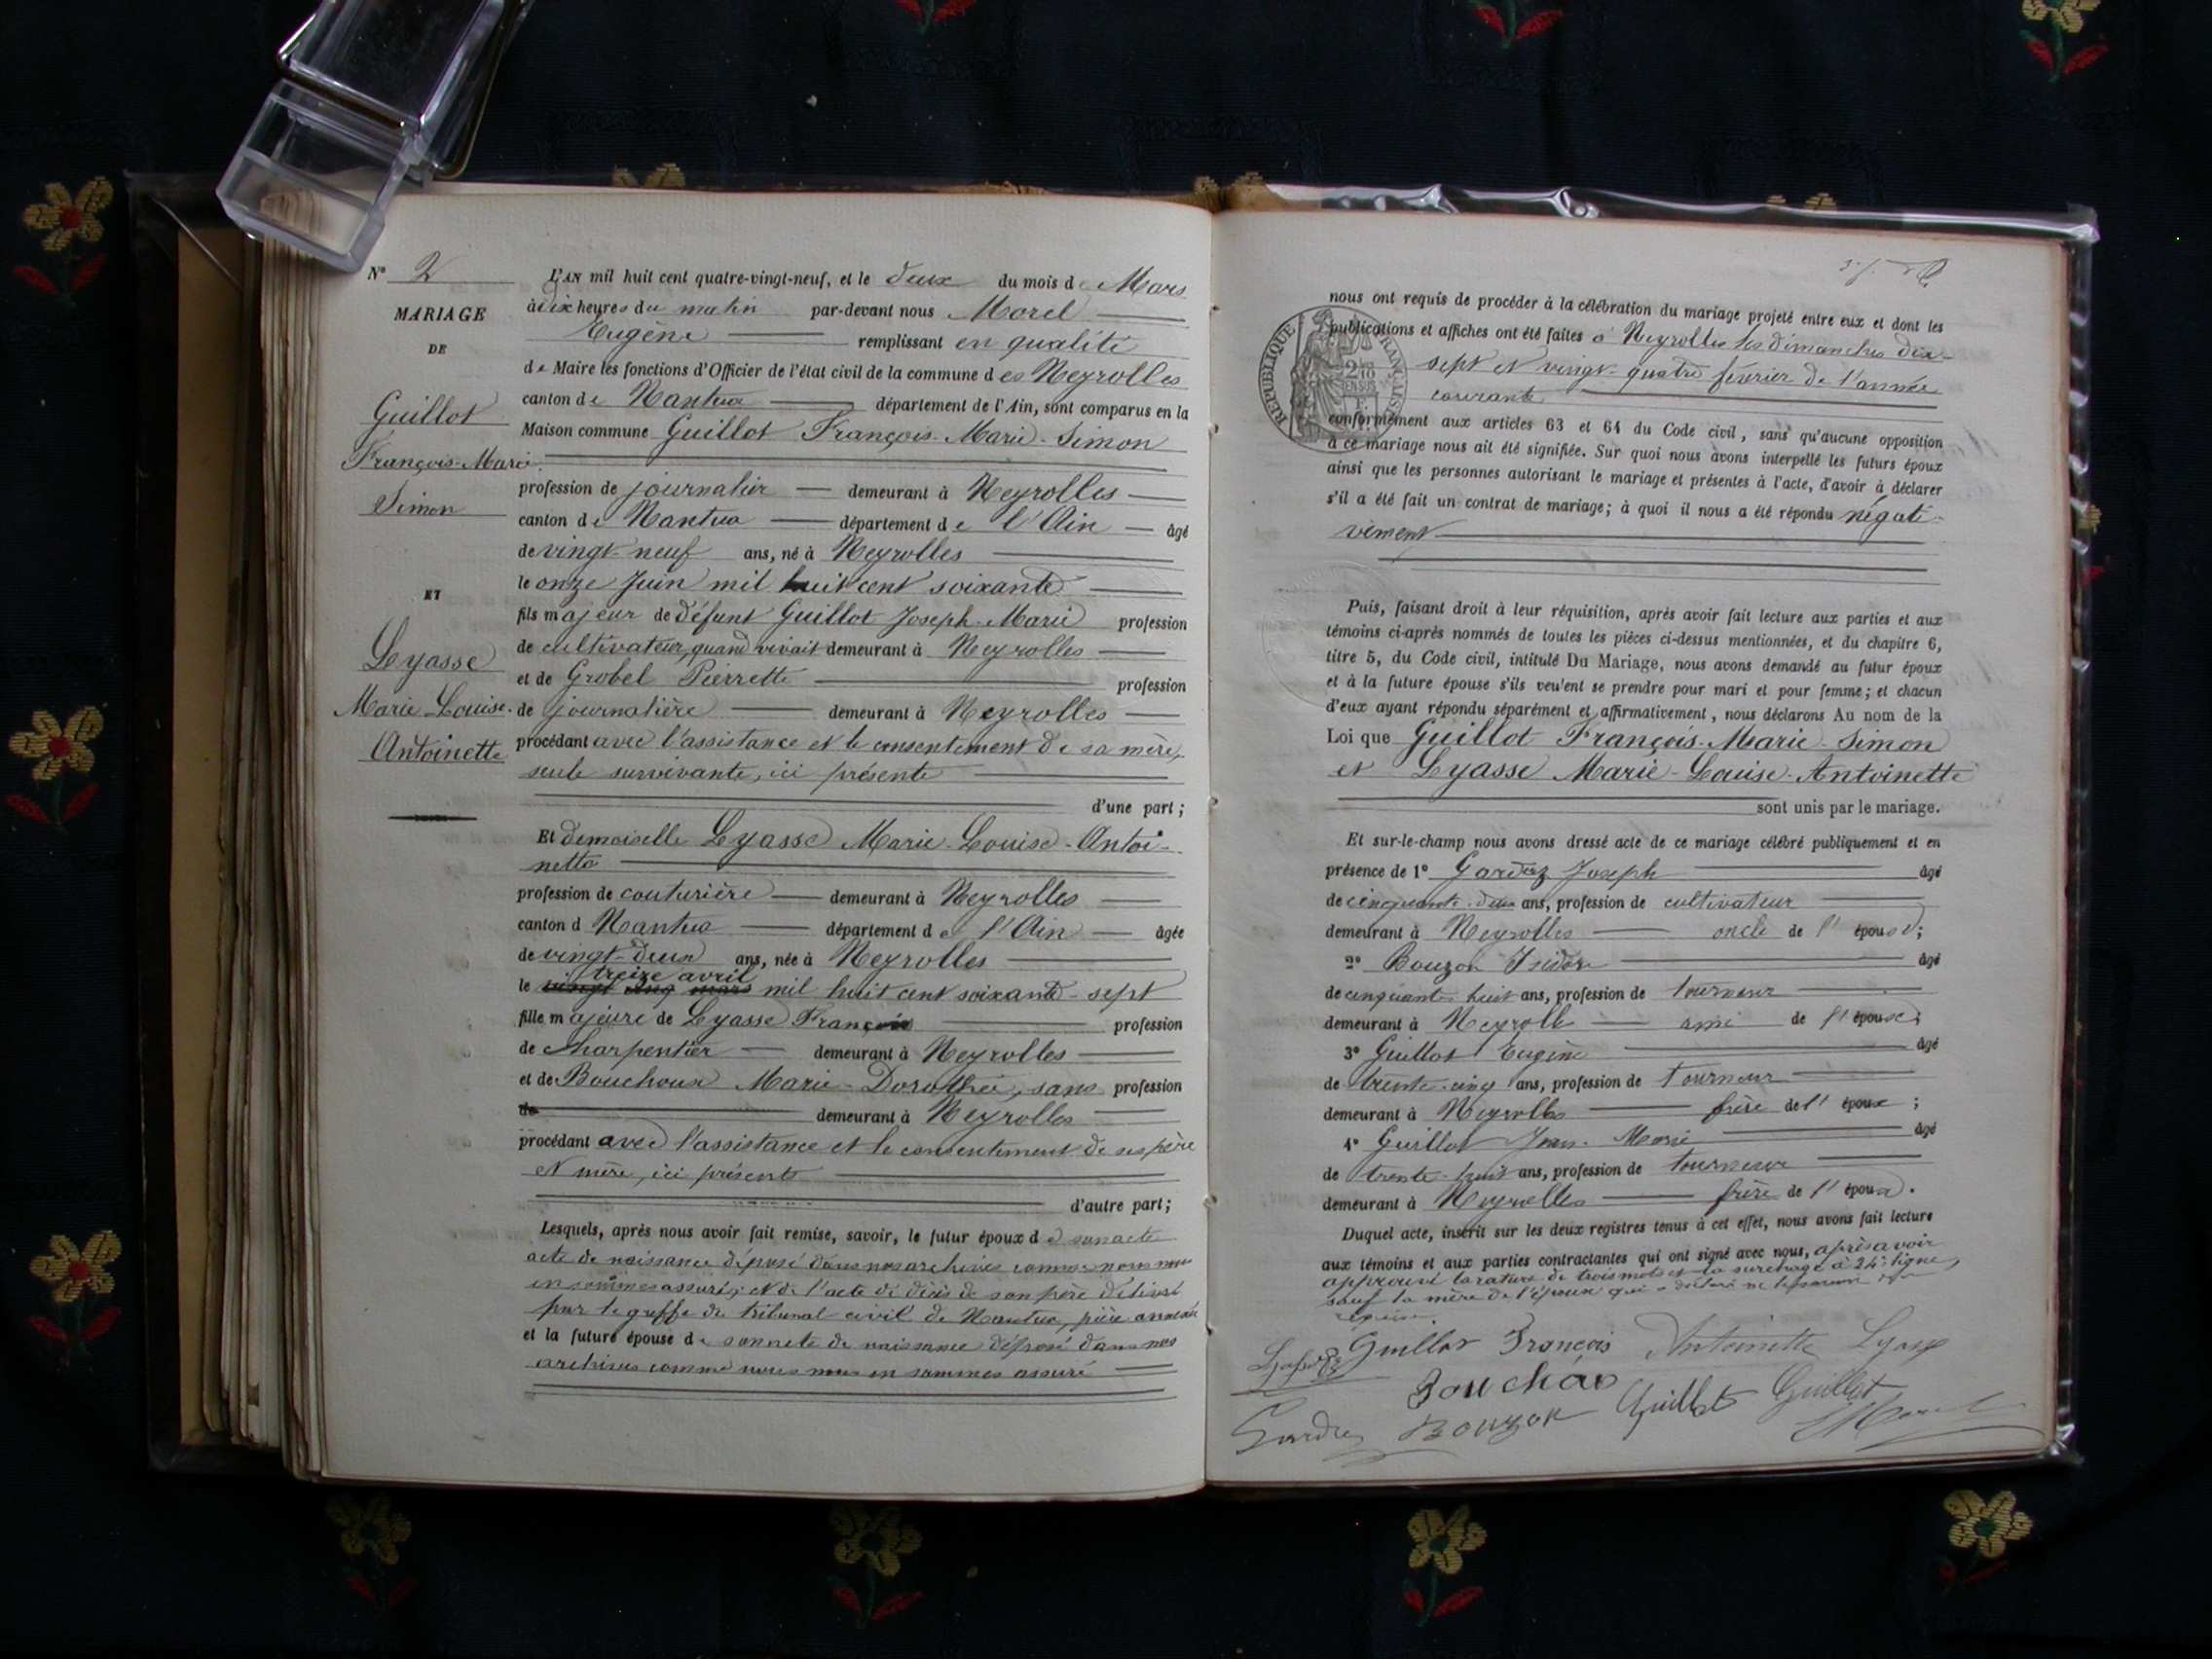 N° 2
MARIAGE
DE
Guillot
François-Marie
Simon
ET
Lyasse
Marie-Louise-
Antoinette
L'AN mil huit cent quatre-vingt-neuf, et le deux du mois de Mars
à dix heures du matin par-devant nous Morel
Eugène remplissant en qualité
de Maire les fonctions d'Officier de l'état civil de la commune des Neyrolles
canton de Nantua département de l'Ain, sont comparus en la
Maison commune Guillot François-Marie-Simon
profession de journalier demeurant à Neyrolles
canton de Nantua département de l'Ain âgé
de vingt-neuf ans, né à Neyrolles
le onze Juin mil huit cent soixante
fils majeur de défunt Guillot Joseph-Marie profession
de cultivateur, quand vivait demeurant à Neyrolles
et de Grobel Pierrette profession
de journalière demeurant à Neyrolles
procédant avec l'assistance et le consentement de sa mère,
seule survivante, ici présente
d'une part ;
Et demoiselle Lyasse Marie-Louise-Antoi-
nette
profession de couturière demeurant à Neyrolles
canton d Nantua département de l'Ain âgée
de vingt-deux ans, née à Neyrolles
treize avril
le vingt cinq mars mil huit cent soixante-sept
fille majeure de Lyasse François profession
de charpentier demeurant à Neyrolles
et de Bouchoux Marie-Dorothée, sans profession
de demeurant à Neyrolles
procédant avec l'assistance et le consentement de ses père
et mère, ici présents
d'autre part;
Lesquels, après nous avoir fait remise, savoir, le futur époux de son acte
acte de naissance déposé dans nos archives comme nous nous
en sommes assuré; et de l'acte de décès de son père délivré
par le greffe du tribunal civil de Nantua, pièce annexée
et la future épouse de son acte de naissance déposé dans nos
archives comme nous nous en sommes assuré
nous ont requis de procéder à la célébration du mariage projeté entre eux et dont les
publications et affiches ont été faites à Neyrolles les dimanches dix-
sept et vingt-quatre février de l'année
courante
RÉPUBLIQUE FRANÇAISE
conformément aux articles 63 et 64 du Code civil, sans qu'aucune opposition
à ce mariage nous ait été signifiée. Sur quoi nous avons interpellé les futurs époux
ainsi que les personnes autorisant le mariage et présentes à l'acte, d'avoir à déclarer
s'il a été fait un contrat de mariage; à quoi il nous a été répondu négati-
vement
Puis, faisant droit à leur réquisition, après avoir fait lecture aux parties et aux
témoins ci-après nommés de toutes les pièces ci-dessus mentionnées, et du chapitre 6,
titre 5, du Code civil, intitulé Du Mariage, nous avons demandé au futur époux
et à la future épouse s'ils veulent se prendre pour mari et pour femme; et chacun
d'eux ayant répondu séparément et affirmativement, nous déclarons Au nom de la
Loi que Guillot François-Marie-Simon
et Lyasse Marie-Louise-Antoinette
sont unis par le mariage.
Et sur-le-champ nous avons dressé acte de ce mariage célébré publiquement et en
présence de 1° Gardaz Joseph âgé
de cinquante-deux ans, profession de cultivateur
demeurant à Neyrolles oncle de l'
2° Bouzon Isidore âgé
de cinquante-huit ans, profession de tourneur
demeurant à Neyrolles ami de l'épouse;
3° Guillot Eugène âgé
de trente-cinq ans, profession de tourneur
demeurant à Neyrolles frère de l'époux ;
4° Guillot Jean-Marie âgé
de trente-huit ans, profession de tourneur
demeurant à Neyrolles frère de l'époux.
Duquel acte, inscrit sur les deux registres tenus à cet effet, nous avons fait lecture
aux témoins et aux parties contractantes qui ont signé avec nous, après avoir
approuvé la rature de trois mots et la surcharge à 24e ligne,
sauf la mère de l'époux qui a déclaré ne le
requise.
Guillot François Antoinette Lyasse
Bouchoux
Bouzon Guillot Guillot
Morel